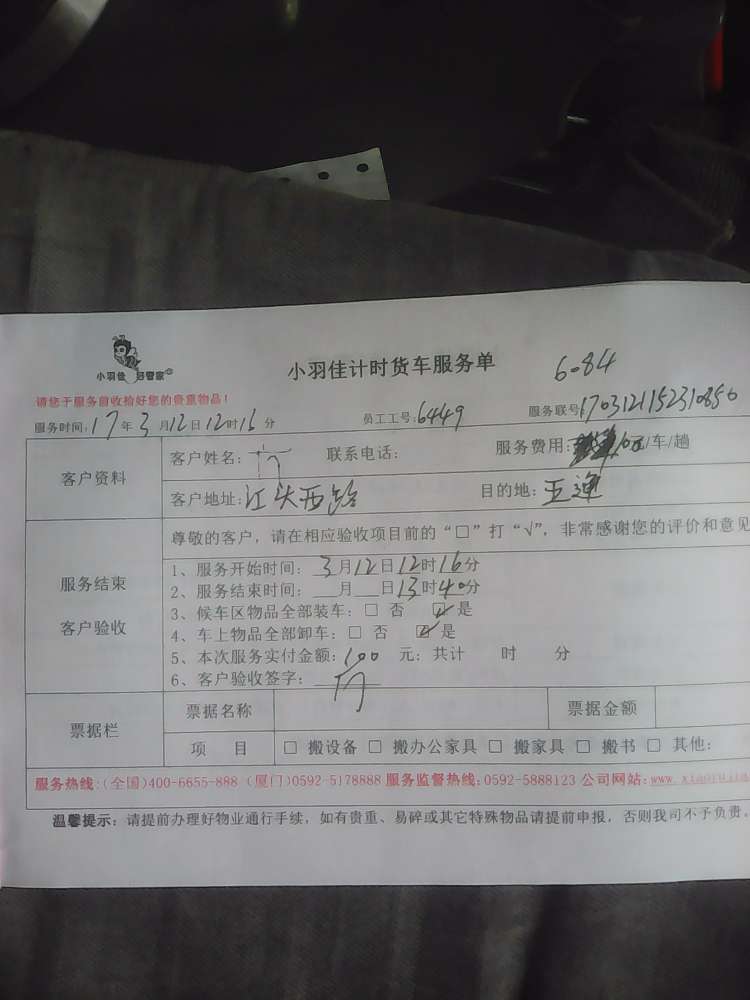 小羽佳 好管家
小羽佳计时货车服务单
6084
请您于服务前收拾好您的贵重物品!
服务时间:17年3月12日12时16分 员工工号:6449 服务联号:1703121152310850
客户资料
客户姓名: 联系电话: 服务费用: /车/趟
客户地址:江头西路 目的地:五通
服务结束
客户验收
尊敬的客户,请在相应验收项目前的“□”打“√”,非常感谢您的评价和意见
1、服务开始时间:3月12日12时16分
2、服务结束时间:__月__日13时40分
3、候车区物品全部装车:□ 否 ☑ 是
4、车上物品全部卸车:□ 否 ☑ 是
5、本次服务实付金额:100 元:共计 时 分
6、客户验收签字:
票据栏
票据名称 票据金额
项 目 □ 搬设备 □ 搬办公家具 □ 搬家具 □ 搬书 □ 其他:
服务热线:(全国)400-6655-888 (厦门)0592-5178888 服务监督热线:0592-5888123 公司网站:www.
温馨提示:请提前办理好物业通行手续,如有贵重、易碎或其它特殊物品请提前申报,否则我司不予负责。